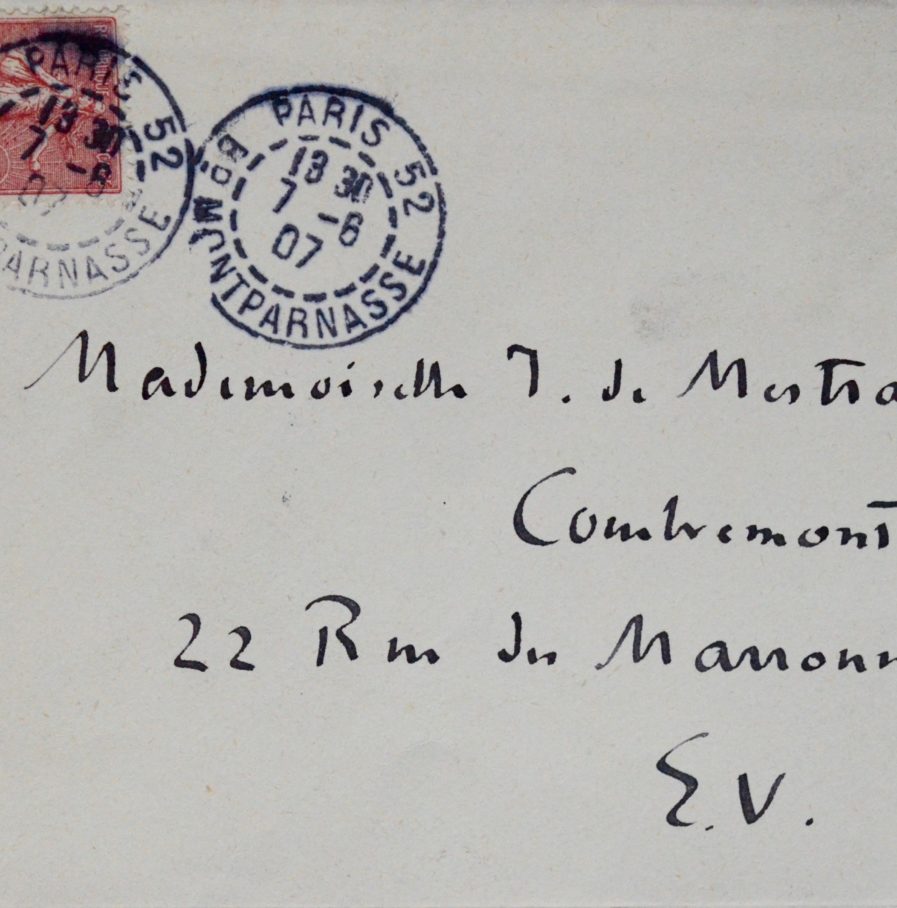 PARIS 52
13 30
7 -6
07
PARNASSE
PARIS 52
13 30
7 -6
07
BD MONTPARNASSE
Mademoiselle J. de Mestra
Combremont
22 Rue du Marronn
E.V.